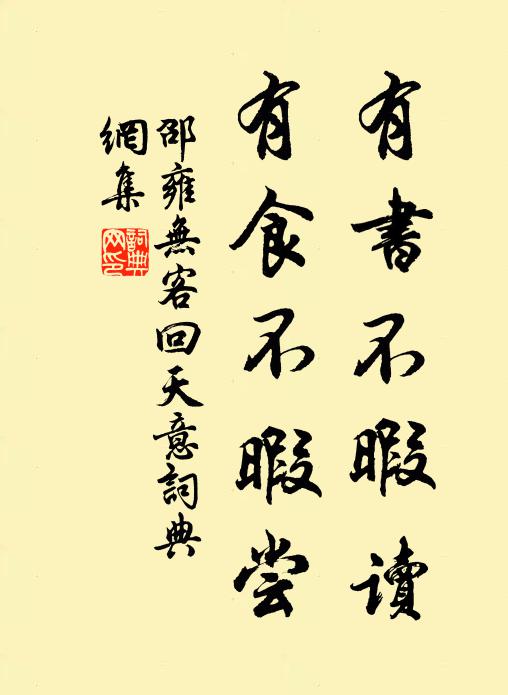 有書不暇讀
有食不暇尝
邵雍無客回天意詞典
網集
詞典
网印